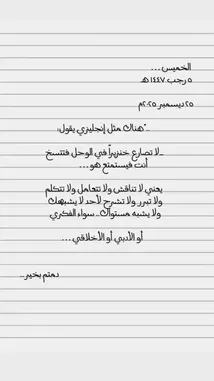 الخميس ...
٥ رجب ١٤٤٧ هـ
٢٥ ديسمبر ٢٠٢٥م
.."هناك مثل إنجليزي يقول:
_لا تصارع خنزيراً في الوحل فتتسخ
أنت فيستمتع هو ...
يعني لا تناقش ولا تتعامل ولا تتكلم
ولا تبرر ولا تشرح لأحد لا يشبهك
ولا يشبه مستواك.. سواء الفكري
أو الأدبي أو الأخلاقي ...
دمتم بخير ..